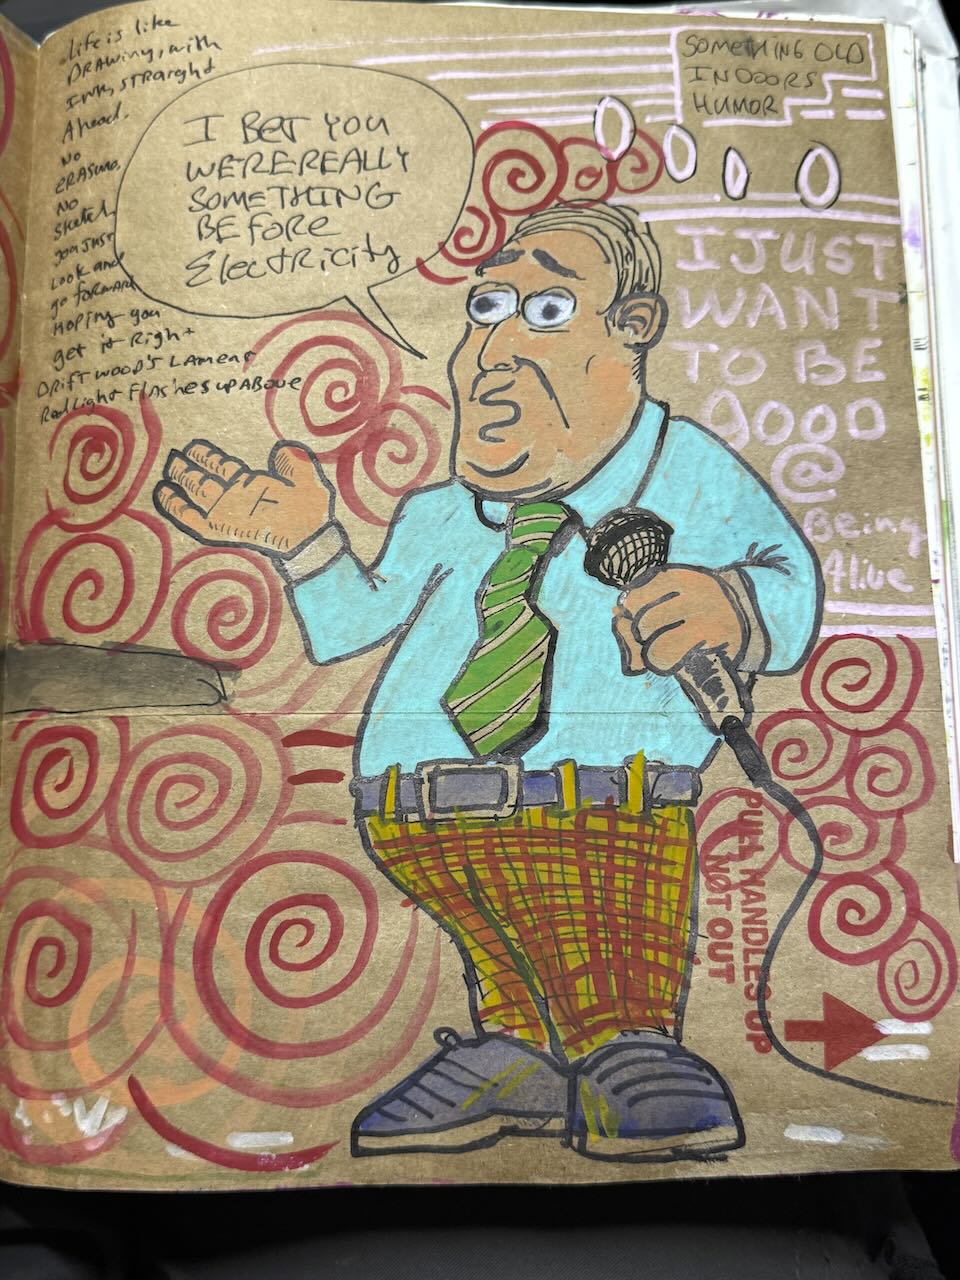 Life is like
Drawing, with
Ink, straight
Ahead.
No
erasing,
No
sketch
you just
Look and
go forward
Hoping you
get it Right
DRiFTWOOD'S LAMENT
Red Light FLAShes up ABOVE
I BET YOU
WERE REALLY
SOMETHING
BEFORE
Electricity
SOMETHING OLD
INDOORS
HUMOR
I JUST
WANT
TO BE
GOOD
@
Being
Alive
PULL HANDLES UP
NOT OUT